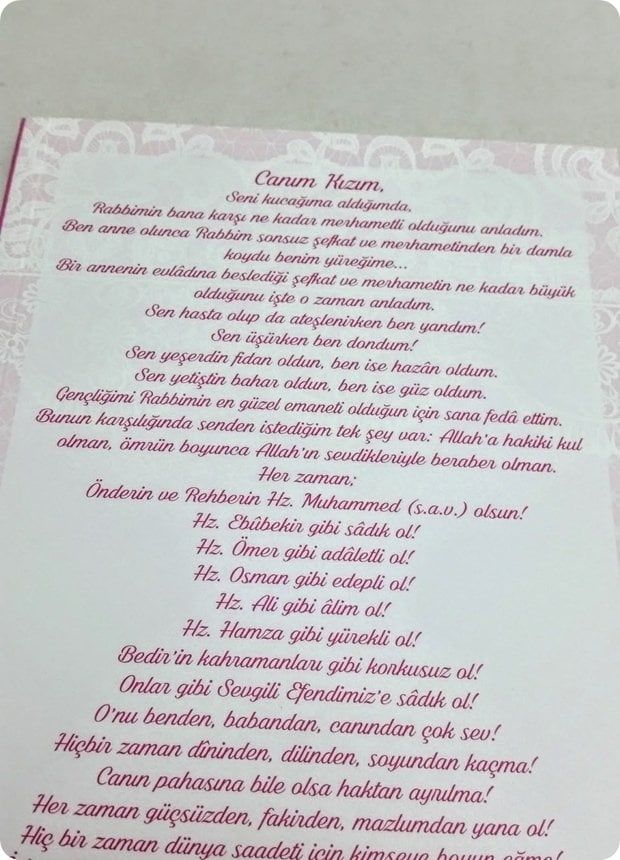 Canım Kızım,
Seni kucağıma aldığımda,
Rabbimin bana karşı ne kadar merhametli olduğunu anladım.
Ben anne olunca Rabbim sonsuz şefkat ve merhametinden bir damla
koydu benim yüreğime...
Bir annenin evlâdına beslediği şefkat ve merhametin ne kadar büyük
olduğunu işte o zaman anladım.
Sen hasta olup da ateşlenirken ben yandım!
Sen üşürken ben dondum!
Sen yeşerdin fidan oldun, ben ise hazân oldum.
Sen yetiştin bahar oldun, ben ise güz oldum.
Gençliğimi Rabbimin en güzel emaneti olduğun için sana fedâ ettim.
Bunun karşılığında senden istediğim tek şey var: Allah'a hakiki kul
olman, ömrün boyunca Allah'ın sevdikleriyle beraber olman.
Her zaman;
Önderin ve Rehberin Hz. Muhammed (s.a.v.) olsun!
Hz. Ebûbekir gibi sâdık ol!
Hz. Ömer gibi adâletli ol!
Hz. Osman gibi edepli ol!
Hz. Ali gibi âlim ol!
Hz. Hamza gibi yürekli ol!
Bedir'in kahramanları gibi korkusuz ol!
Onlar gibi Sevgili Efendimiz'e sâdık ol!
O'nu benden, babandan, canından çok sev!
Hiçbir zaman dîninden, dilinden, soyundan kaçma!
Canın pahasına bile olsa haktan ayrılma!
Her zaman güçsüzden, fakirden, mazlumdan yana ol!
Hiç bir zaman dünya saadeti için kimseye boyun eğme!